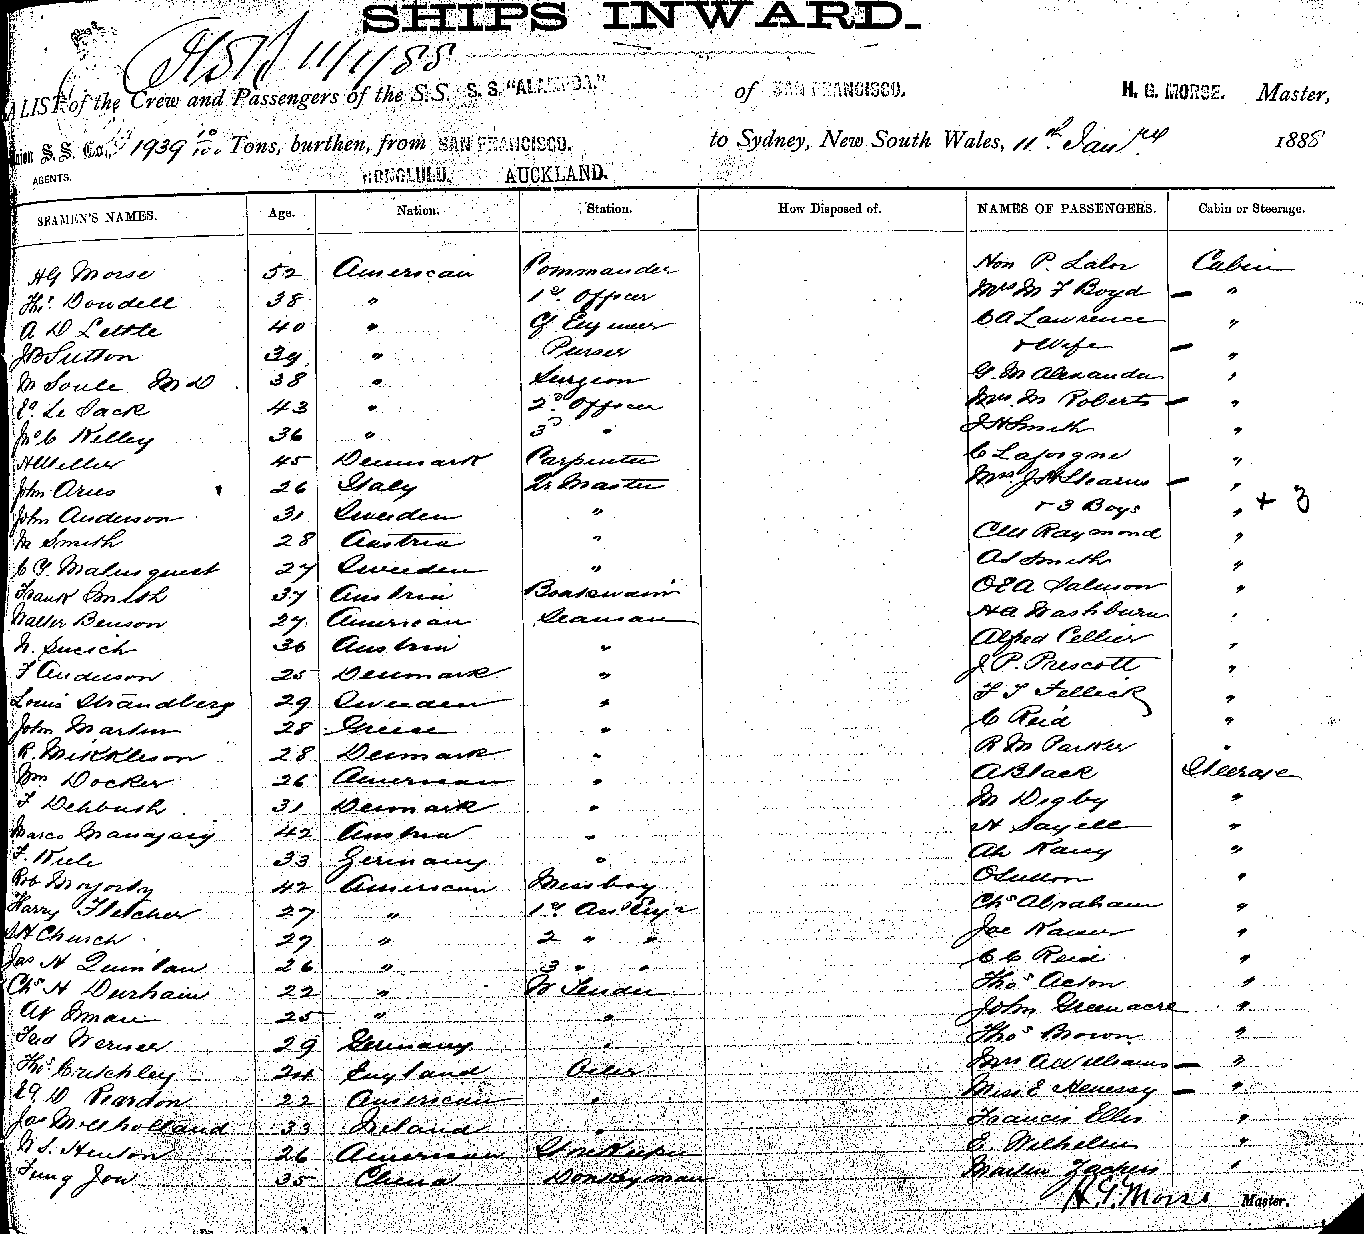 SHIPS INWARD.
11/1/88
A LIST of the Crew and Passengers of the S.S. S. S. "ALAMEDA." of SAN FRANCISCO. H. G. MORSE. Master,
Union S. S. Co., 1939 10/100 Tons, burthen, from SAN FRANCISCO. to Sydney, New South Wales, 11th Jany 1888
AGENTS. HONOLULU. AUCKLAND.
SEAMEN'S NAMES. Age. Nation. Station. How Disposed of. NAMES OF PASSENGERS. Cabin or Steerage.
HG Morse 52 American Commander Hon P. Lalor Cabin
Thos. Dowdell 38 " 1st. Officer Mrs M F Boyd — "
A D Little 40 " Cf Engineer CA Lawrence "
JB Sutton 39 " Purser & Wife — "
M Soule MD 38 " Surgeon G. M Alexander "
Ed. Le Sack 43 " 2nd Officer Mrs. M Roberts — "
Jno C Kelley 36 " 3d " J H Smith "
H Weller 45 Denmark Carpenter C Laforgne "
John Aries 26 Italy Qr Master Mrs J H Stearns — "
John Anderson 31 Sweden " & 3 Boys " + 3
M Smith 28 Austria " Raymond "
C G. Malmquist 27 Sweden " AS Smith "
Frank Smith 37 Austria Boatswain OEA "
Walter Benson 27 American Seaman HA Washburn "
N. Sucich 36 Austria " Alfred Cellier "
F Anderson 25 Denmark " J. P. Prescott "
Louis Strandberg 29 Sweden " F T Fellick "
John Martin 28 Greese " C Reid "
R. Mikkleson 28 Denmark " R M Parker "
Wm Docker 26 American " A Black Steerage
F Dehbush 31 Denmark " M Digby "
Marco 42 Austria " H Sayell "
F. Kiele 33 Germany " Ah Kang "
Rob 42 American Messboy O Sutton "
Harry Fletcher 27 " 1st. As Engr Chs Abraham "
Church 27 " 2 " " Joe Kaiser "
Jas H Quinlan 26 " 3 " " C C Reid "
Chs H Durham 22 " W Tender Thos Acton "
25 " " John Greenacre "
Fred Werner 29 Germany " Thos Brown "
Thos Critchley 24 England Oiler Mrs A Williams — "
Ed. D Reardon 22 American " Miss E Henessy — "
Jas Mulholland 33 Ireland " Francis Ellis "
N S. Henton 26 American StoreKeeper E Wilhelm "
Fung Jow 35 China Donkeyman Martin "
H. G. Morse Master.